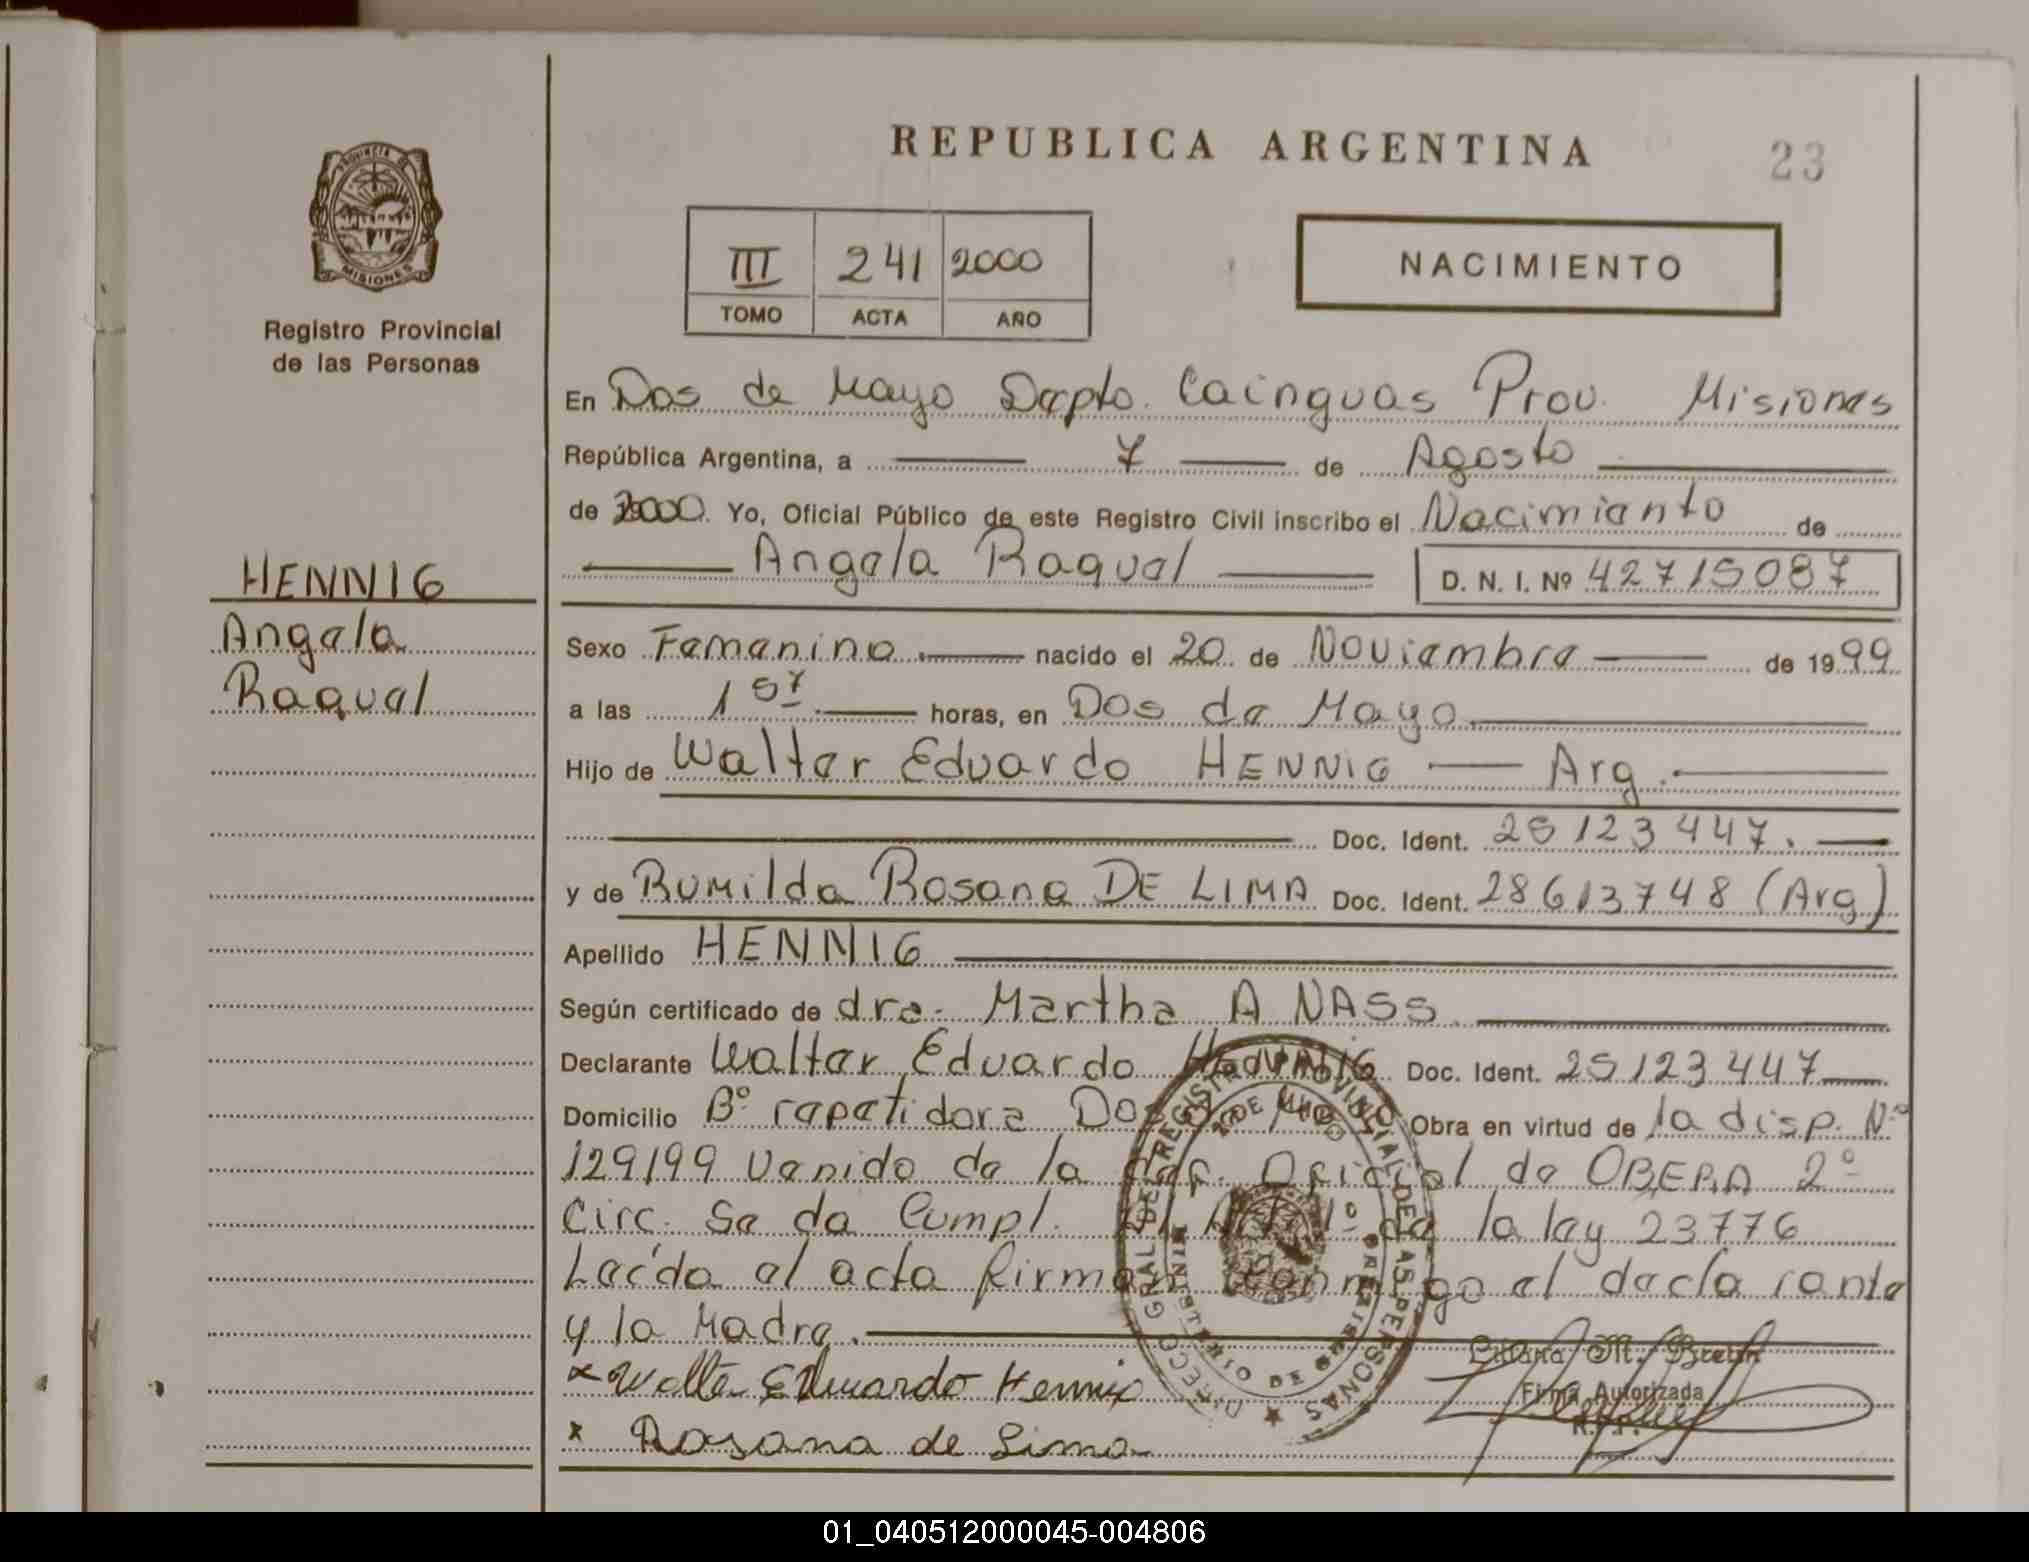 REPUBLICA ARGENTINA
23
PROVINCIA DE
MISIONES
Registro Provincial
de las Personas
III 241 2000
TOMO ACTA AÑO
NACIMIENTO
En Dos de Mayo Depto. Cainguas Prov. Misiones
República Argentina, a 7 de Agosto
de 2000. Yo, Oficial Público de este Registro Civil inscribo el Nacimiento de
Angela Raquel D. N. I. Nº 42715087
HENNIG
Angela
Raquel
Sexo Femenino nacido el 20 de Noviembre de 1999
a las 1 57 horas, en Dos de Mayo
Hijo de Walter Eduardo HENNIG Arg.
Doc. Ident. 25123447.
y de Rumilda Rosana DE LIMA Doc. Ident. 28613748 (Arg)
Apellido HENNIG
Según certificado de dra. Martha A NASS
Declarante Walter Eduardo Doc. Ident. 25123447
Domicilio Bº repetidora Dos de Mayo Obra en virtud de la disp. Nº
129199 Venido de la Oficial de OBERA 2º
Circ. Se da Cumpl. Art 1º de la ley 23776
Leída el acta firman conmigo el declarante
y la Madre.
x Walter Eduardo Hennig
x Rosana de Lima
Liliana M.
Firma Autorizada
R.P.P.
DIRECC GRAL DEL REGISTRO PROVINCIAL DE LAS PERSONAS
2 DE MAYO
MINISTERIO DE GOBIERNO
01_040512000045-004806